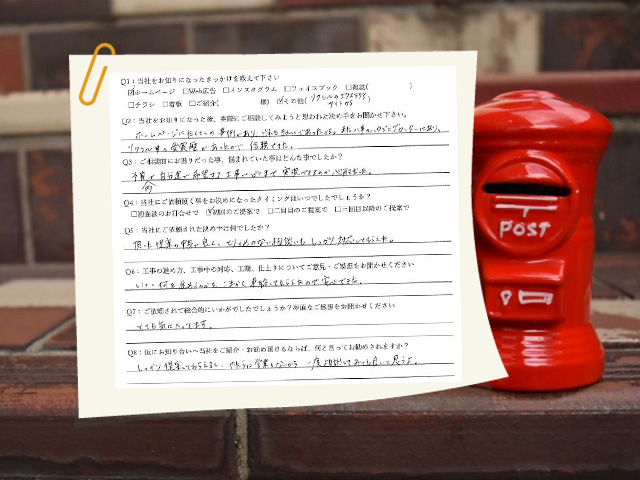 Q1：当社をお知りになったきっかけを教えて下さい
☑ホームページ □Web広告 □インスタグラム □フェイスブック □雑誌( )
□チラシ □看板 □ご紹介( 様) ☑その他(リクシルのエクステリア
サイトから)
Q2：当社をお知りになった後、実際にご相談してみようと思われた決め手をお聞かせ下さい。
ホームページにたくさんの事例があり、
リクシル 受賞歴があったので信頼できた。
Q3：ご相談前にお困りだった事、悩まれていた事はどんな事でしたか？
予算内で自分達が希望する工事がどこまで実現できるのか
Q4：当社にご依頼頂く事をお決めになったタイミングはいつでしたでしょうか？
□初面談のお打合せで ☑初回のご提案で □二回目のご提案で □三回目以降のご提案で
Q5：当社にご依頼された決め手は何でしたか？
しっかり対応してもらえた。
Q6：工事の進め方、工事中の対応、工期、仕上りについてご意見・ご感想をお聞かせください
いつ、何を こまかく連絡してもらえたので安心できた。
Q7：ご依頼されて総合的にいかがでしたでしょうか？率直なご感想をお聞かせください
とても気に入ってます。
Q8：仮にお知り合いへ当社をご紹介・お勧め頂けるならば、何と言ってお勧めされますか？
しっかり提案してもらえるし、 一度相談してみても良いと思うよ。
POST